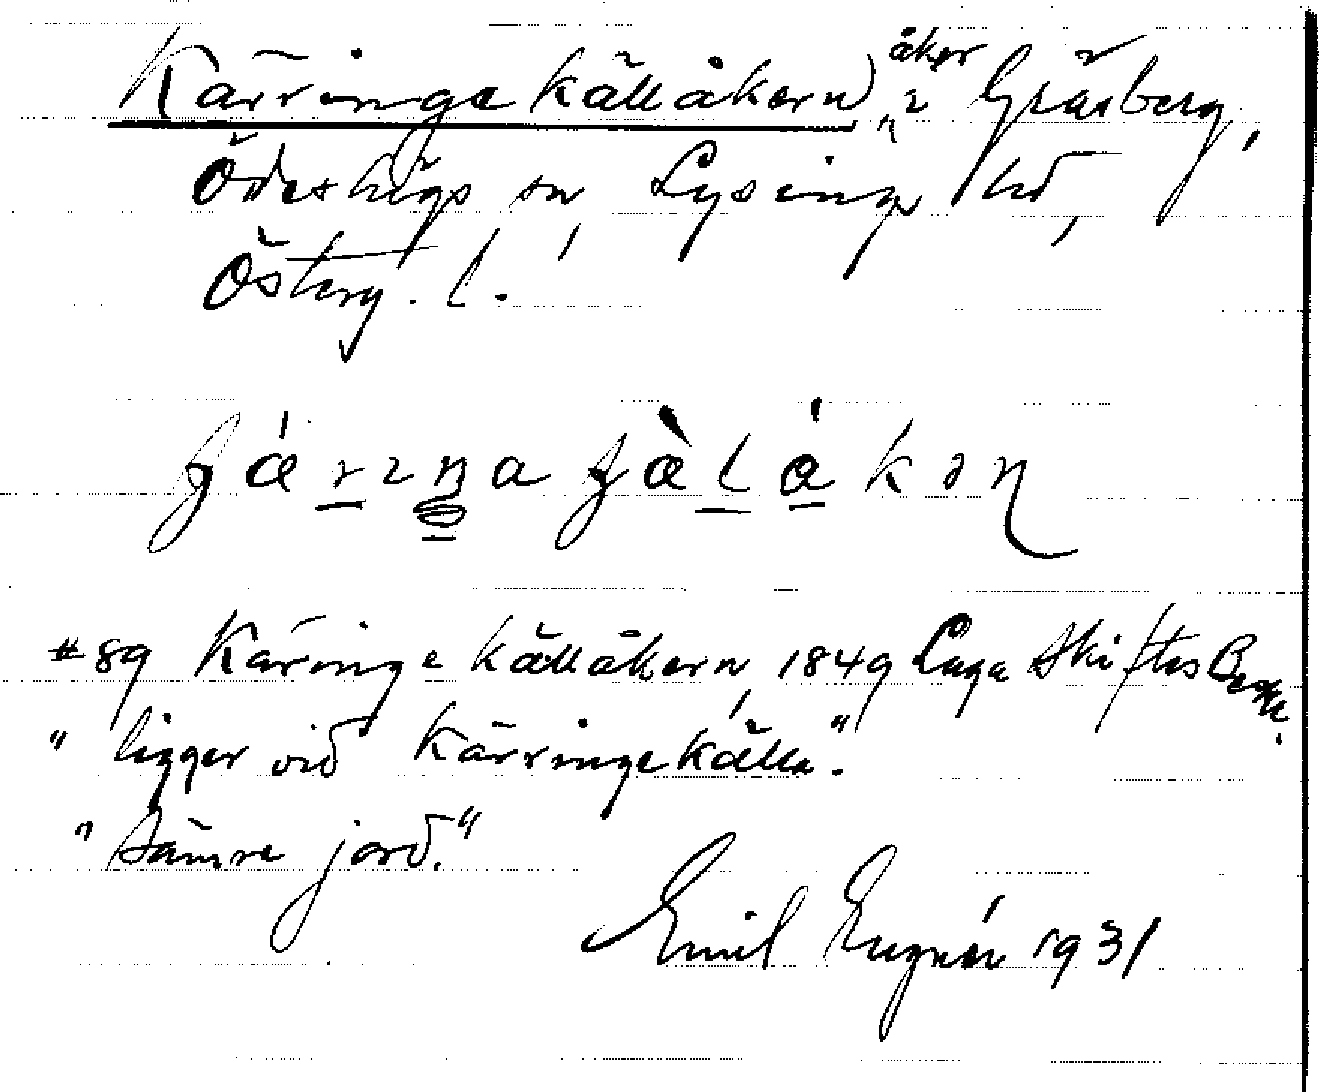 Kärringekällåkern, åker i Gräsberg,
Ödeshögs sn, Lysings hd,
Österg. l.
#89 Käringekällåkern, 1849 Laga Skiftes Beskr.
"ligger vid Kärringekälla."
"Sämre jord."
Emil Engnér 1931